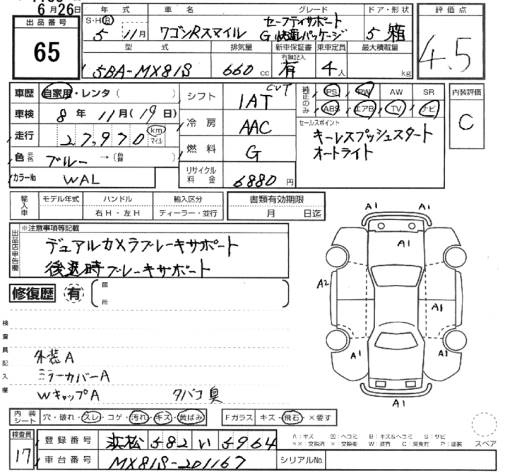 6月26日
出品番号
65
S・H・R 年式 車名 グレード ドア・形状
5 11月 ワゴンRスマイル セーフティサポート
G 快適パッケージ 5 箱
型式 排気量 新車保証書 乗車定員 最大積載量
有無記入
5BA-MX81S 660cc 有 4人 kg
評価点
4.5
車歴 自家用・レンタ( )
車検 8年11月(19日)
走行 27,970 km マイル
色 元色 ブルー→(替)
カラーNo WAL
シフト 1AT CVT
冷房 AAC
燃料 G
リサイクル料金 6880円
純正のみ PS PW AW SR
ABS エアB TV ナビ
セールスポイント
キーレスプッシュスタート
オートライト
内装評価
C
輸入車 モデル年式 ハンドル 輸入区分
年 右H・左H ディーラー・並行
書類有効期限
月 日迄
出品店申告欄
※注意事項等記載
デュアルカメラブレーキサポート
後退時ブレーキサポート
修復歴 有 箇所
検査員記入欄
外装A
ミラーカバーA
WキャップA タバコ臭
A1 A1 A1
A2 A1
A1
A1
内装シート 穴・破れ・スレ・コゲ・汚れ・キズ・黄ばみ
Fガラス キズ・飛石・×要す
スペア
検査員
17
登録番号 浜松 582 い 5964
車台番号 MX81S-201167
シリアルNo.